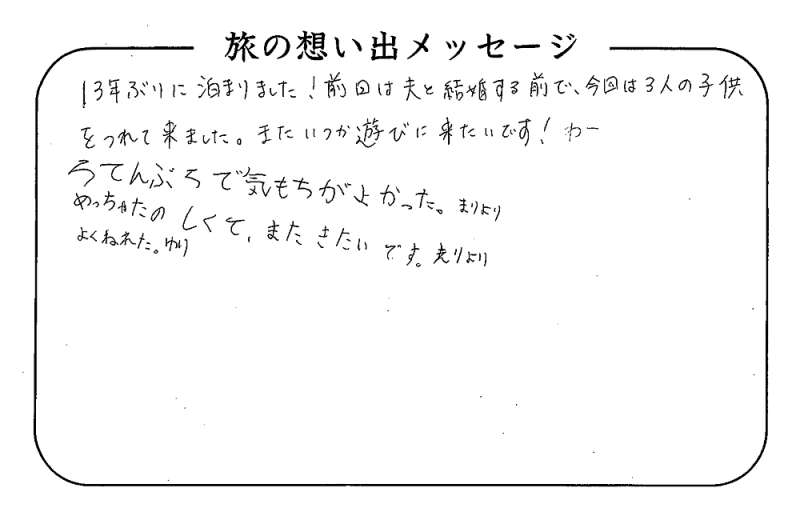 旅の想い出メッセージ
13年ぶりに泊まりました!前回は夫と結婚する前で、今回は3人の子供
をつれて来ました。またいつか遊びに来たいです! わー
ろてんぶろで気もちがよかった。まりより
めっちゃたのしくて、またきたいです。
よくねれた。ゆり